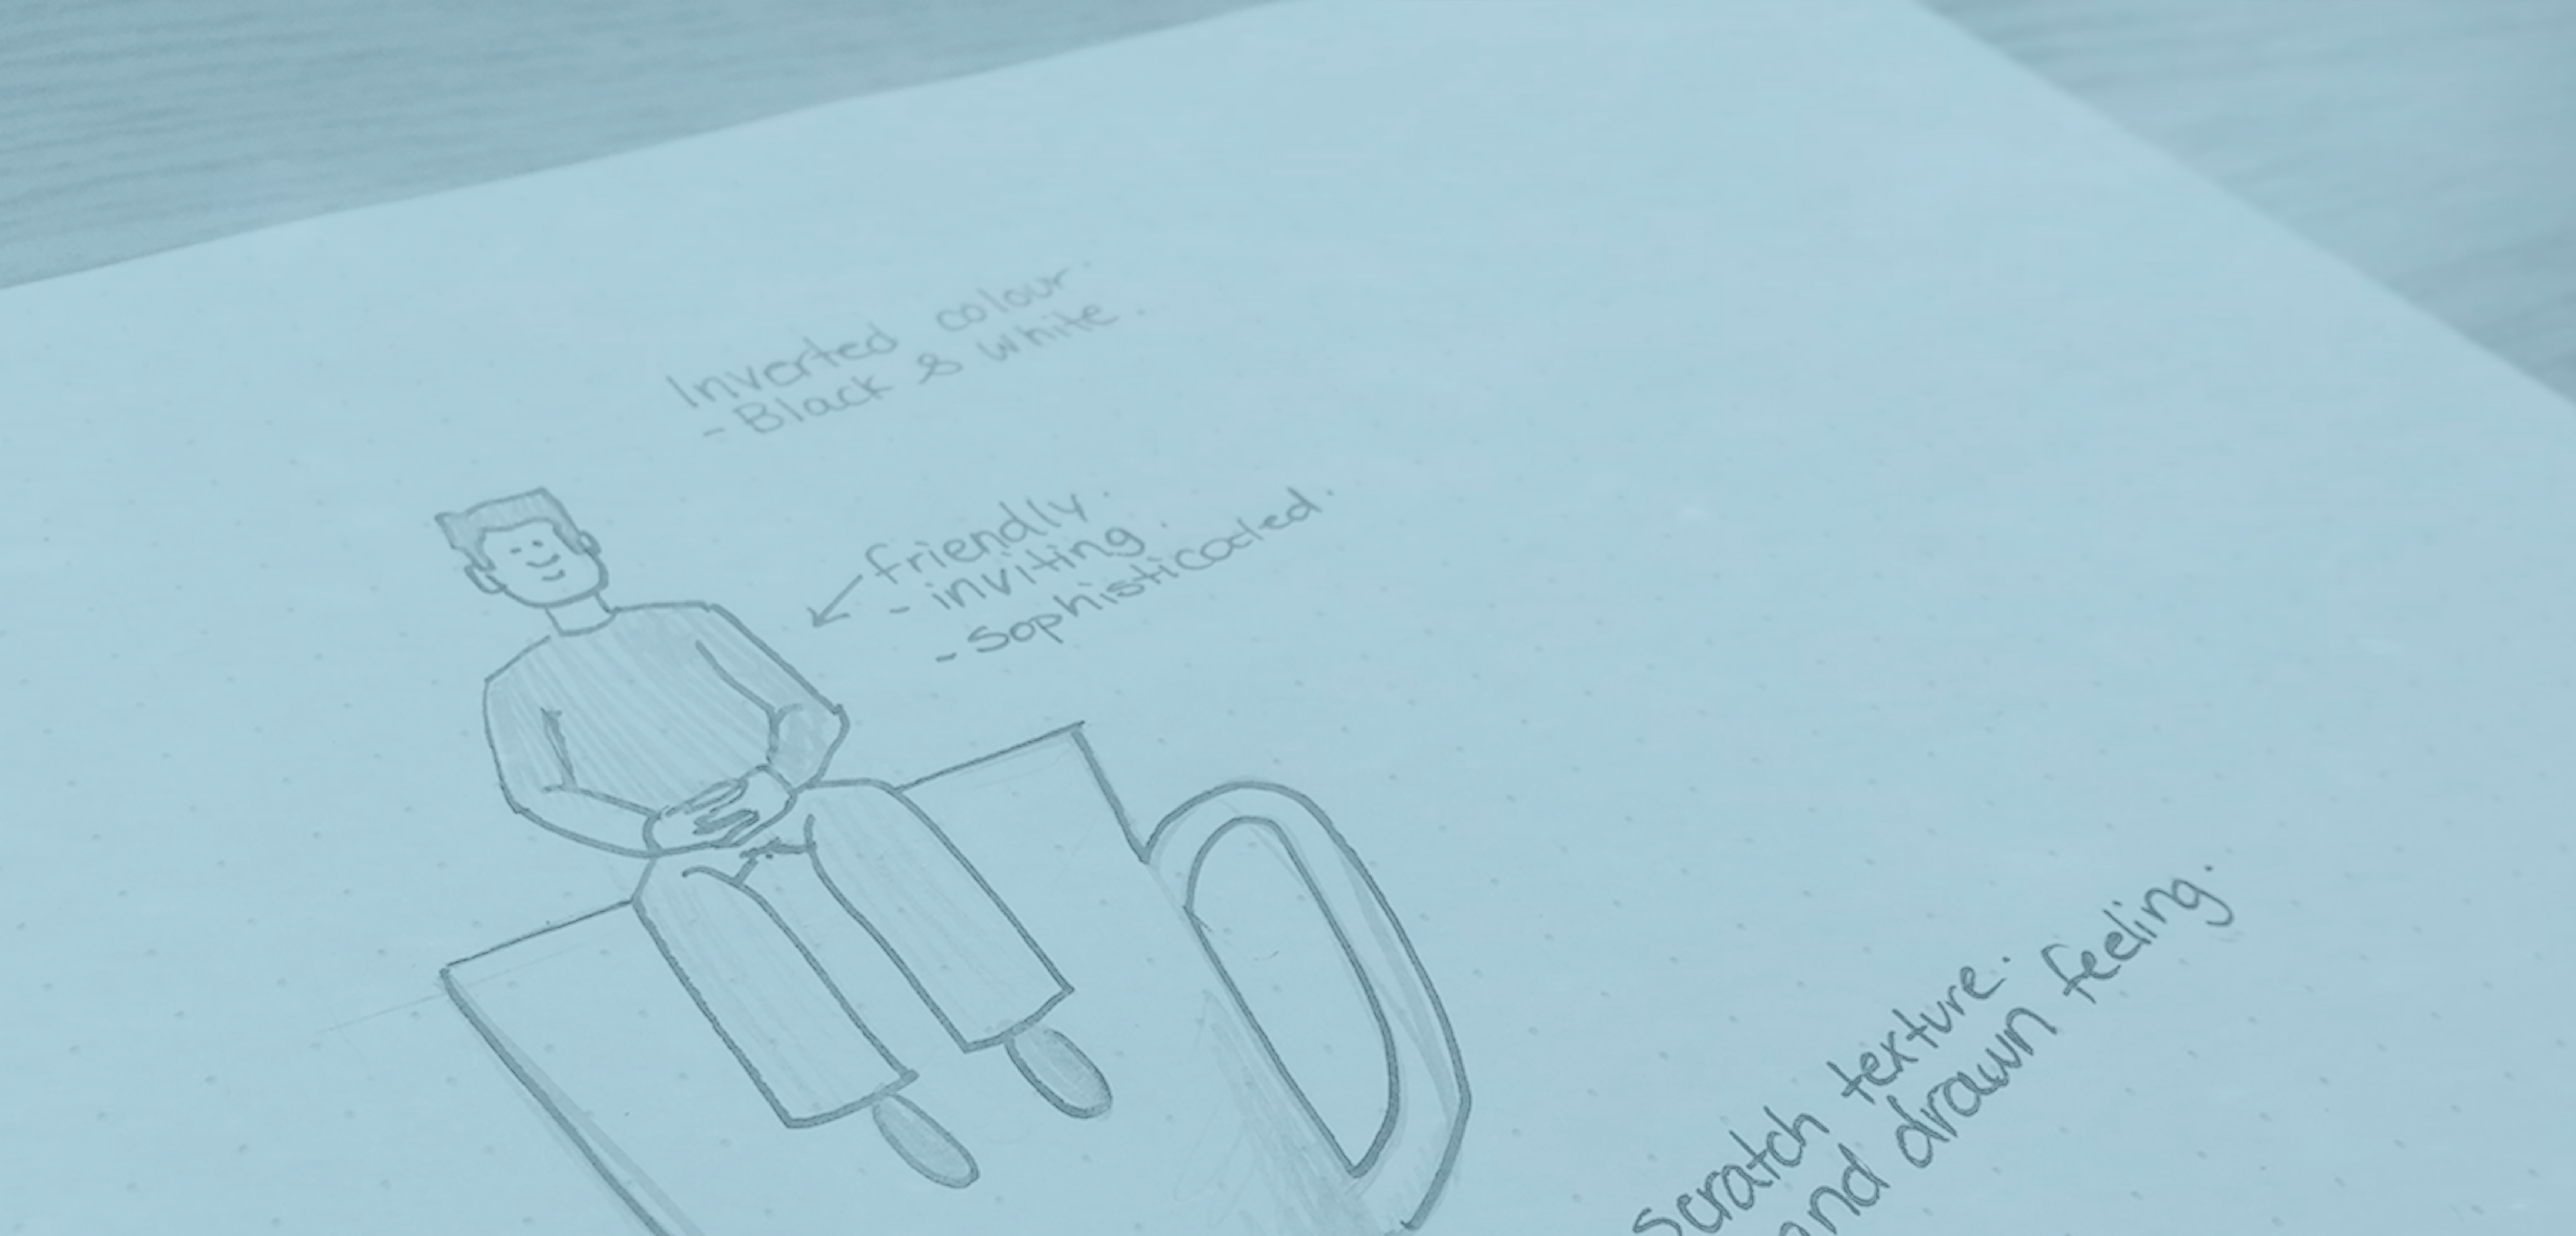 Inverted colour.
- Black & white.
friendly.
- inviting.
- Sophisticated.
Scratch texture.
and drawn feeling.